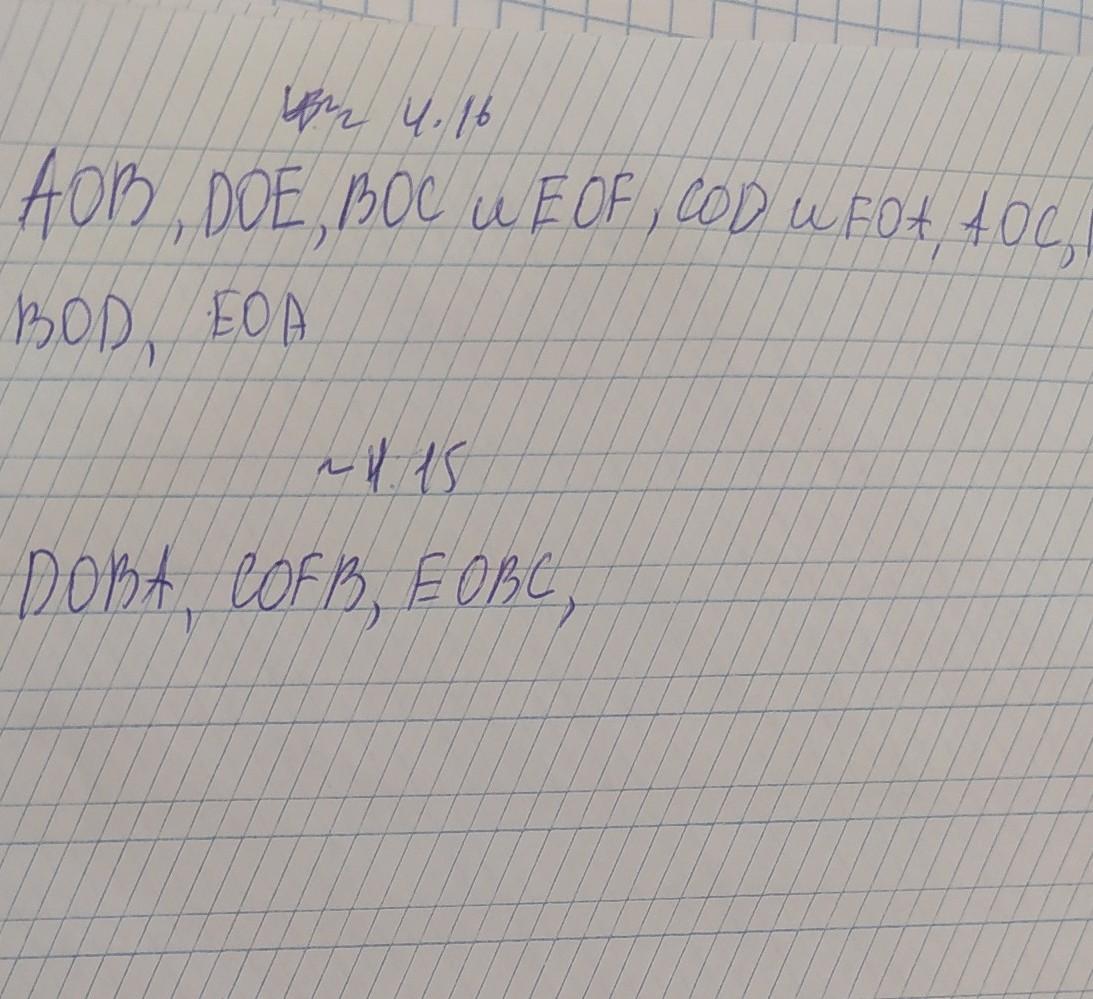 4.16
AOB, DOE, BOC и EOF, COD и FOA, AOC,
BOD, EOA
~4.15
DOBA, COFB, EOBC,